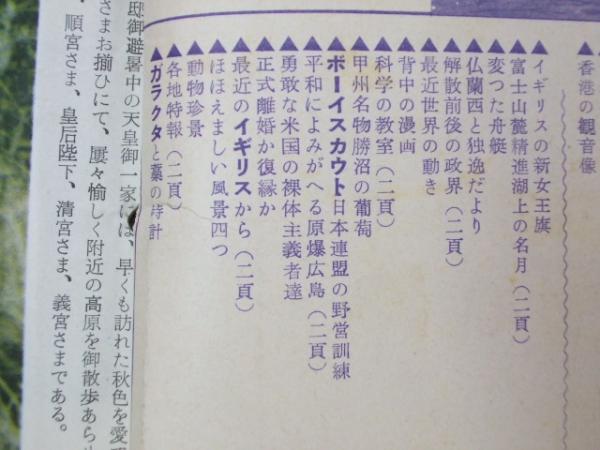 香港の観音像
▲イギリスの新女王旗
▲富士山麓精進湖上の名月（二頁）
▲変つた舟艇
▲仏蘭西と独逸だより
▲解散前後の政界（二頁）
▲最近世界の動き
▲背中の漫画
▲科学の教室（二頁）
▲甲州名物勝沼の葡萄
▲ボーイスカウト日本連盟の野営訓練
▲平和によみがへる原爆広島（二頁）
▲勇敢な米国の裸体主義者達
▲正式離婚か復縁か
▲最近のイギリスから（二頁）
▲ほほえましい風景四つ
▲動物珍景
▲各地特報（二頁）
▲ガラクタと藁の時計
邸御避暑中の天皇御一家には、早くも訪れた秋色を愛
さまお揃ひにて、屢々愉しく附近の高原を御散歩あら
順宮さま、皇后陛下、清宮さま、義宮さまである。